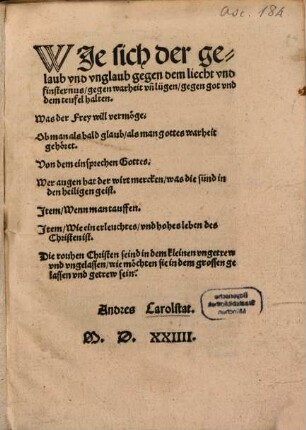 Asc. 184.
WJe sich der ge-
laub vnd vnglaub gegen dem liecht vnd
finsternus/gegen warheit vñ lügen/gegen got vnd
dem teufel halten.
Was der Frey will vermöge.
Ob man als bald glaub/als man gottes warheit
gehöret.
Von dem einsprechen Gottes.
Wer augen hat der wirt mercken/was die sünd in
den heiligen geist.
Jtem/Wenn man tauffen.
Jtem/Wie ein erleuchtes/vnd hohes leben des
Christen ist.
Die rouhen Christen seind in dem kleinen vngetrew
vnd vngelassen/wie möchten sie in dem grossen ge
lassen vnd getrew sein?
Andres Carolstat.
M. D. XXIIII.